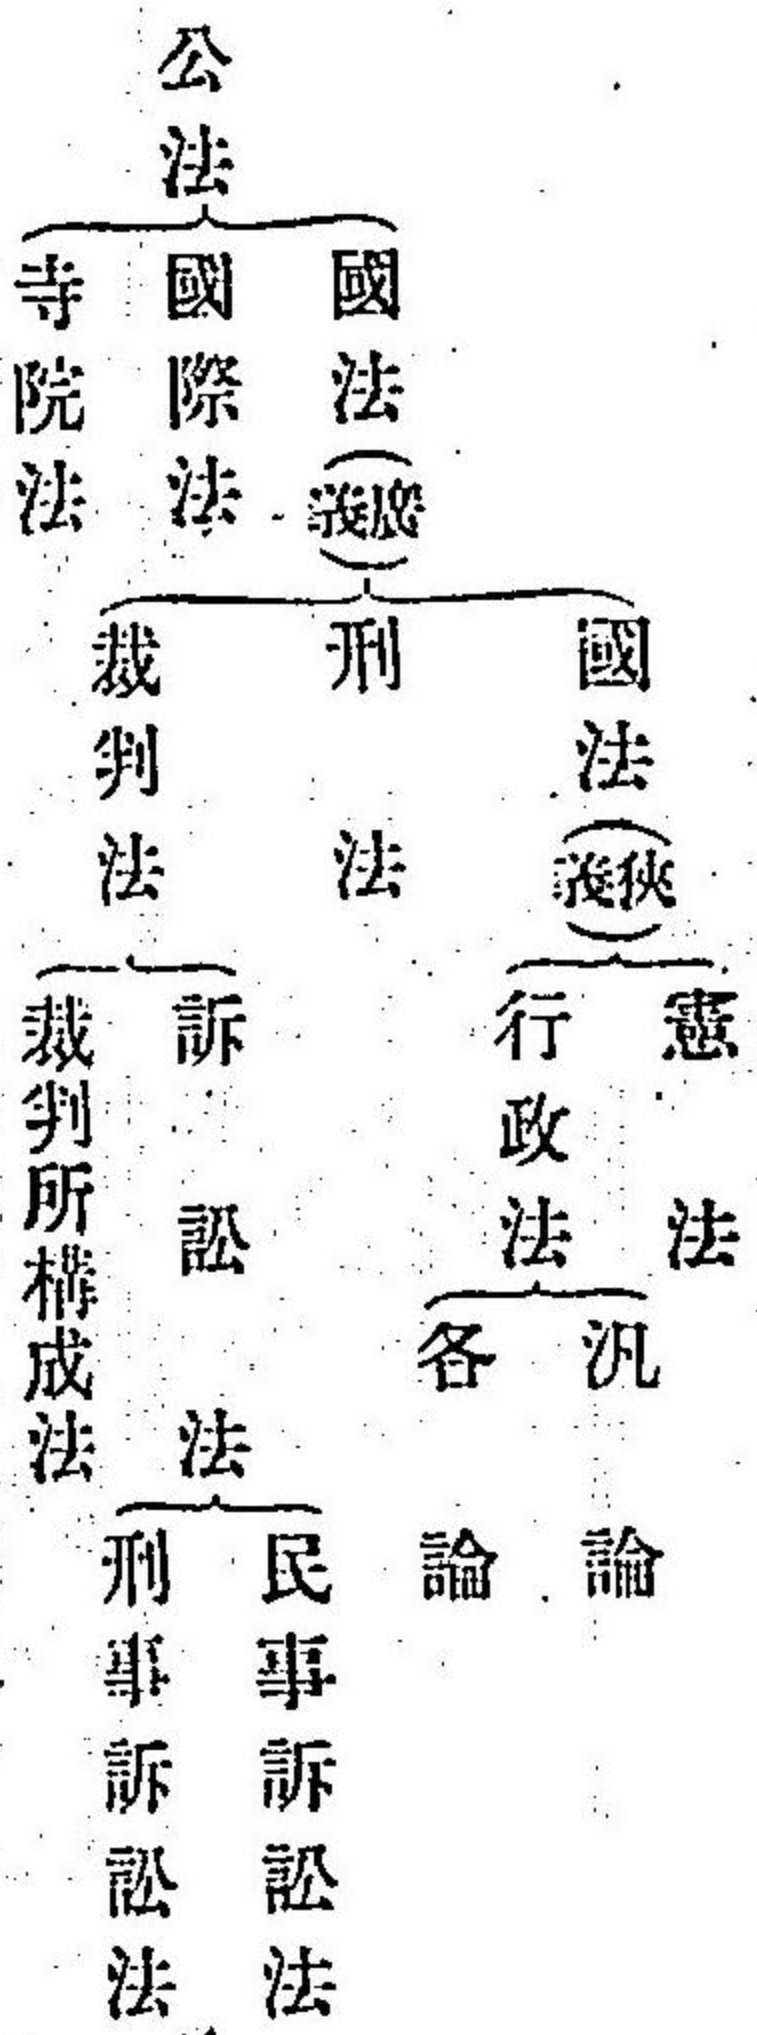 公法
國法(廣義)
國際法
寺院法
國法(狹義)
刑法
裁判法
憲法
行政法
訴訟法
裁判所構成法
汎論
各論
民事訴訟法
刑事訴訟法